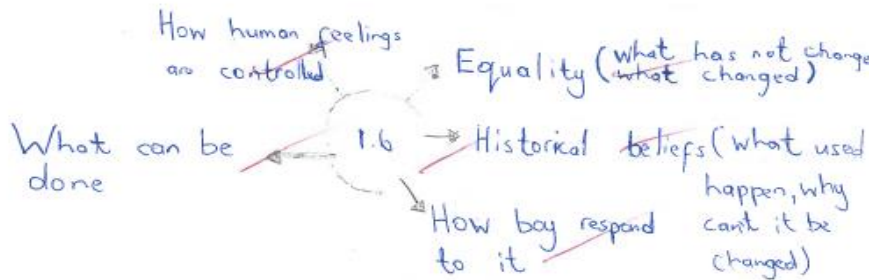 How human feelings
are controlled
Equality (what has not change
what changed)
What can be
done
1.6
Historical beliefs (what used
happen, why
can't it be
changed)
How boy respond
to it